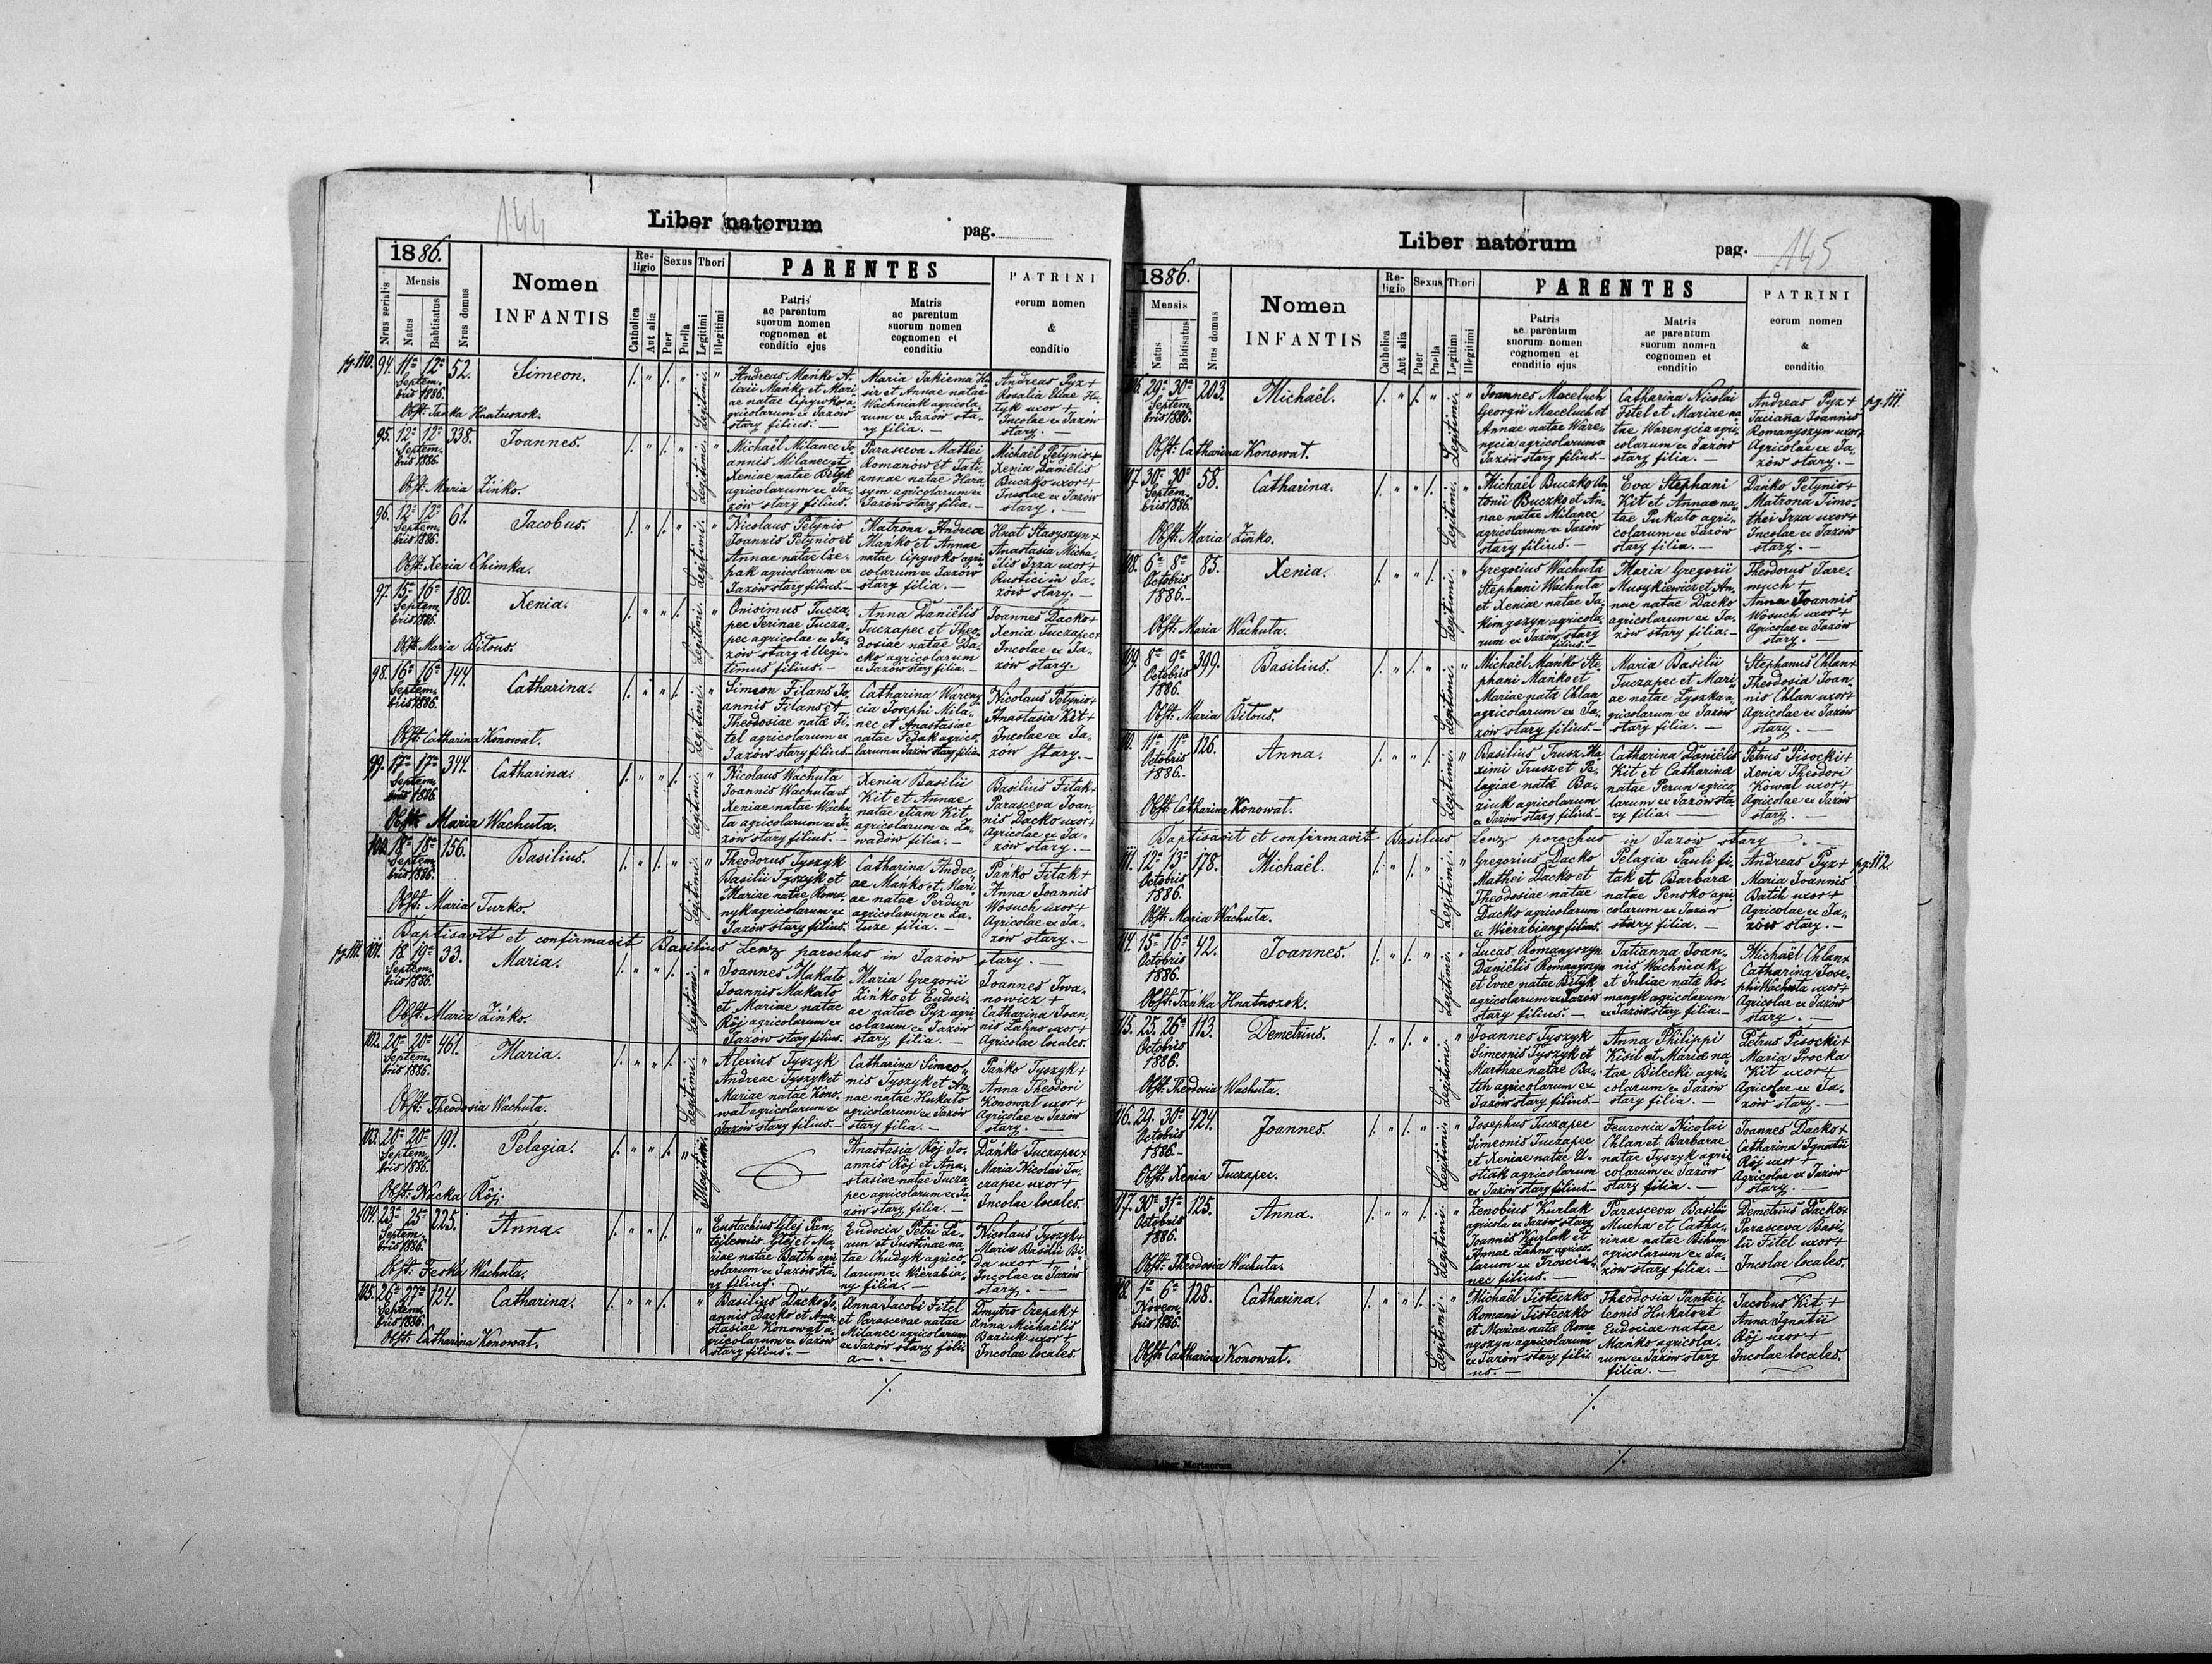 144
Liber natorum
pag.
1886.
Nrus serialis
Mensis
Natus
Babtisatus
Nrus domus
Nomen
INFANTIS
Re-
ligio
Catholica
Aut alia
Sexus
Puer
Puella
Thori
Legitimi
Illegitimi
PARENTES
Patris
ac parentum
suorum nomen
cognomen et
conditio ejus
Matris
ac parentum
suorum nomen
cognomen et
conditio
PATRINI
eorum nomen
&
conditio
pg. 110. 94. 11a 12a 52. Simeon. Legitimi.
Septem-
bris 1886.
Obst: Tańka Hnatuszok.
Andreas Mańko A-
lexii Mańko et Mari-
ae natae Cipywko a-
gricolarum ex Jazów
stary filius.
Maria Jakiema Hu-
sir et Annae natae
Wachniak agricola-
rum ex Jazów sta-
ry filia.
Andreas Pyz +
Rosalia Eliae
uxor +
Incolae ex Jazów
stary.
95. 12a 12a 338. Joannes. Legitimi.
Septem-
bris 1886.
Obst: Maria Zińko.
Michaël Milanec Jo-
annis Milanec et
Xeniae natae Bityk
agricolarum ex Ja-
zów stary filius.
Parasceva Mathei
Romanów et Tati-
annae natae Hara-
sym agricolarum ex
Jazów stary filia.
Michaël Petynio +
Xenia Daniëlis
Buczko uxor +
Incolae ex Jazów
stary.
96. 12a 12a 61. Jacobus. Legitimi.
Septem-
bris 1886.
Obst: Xenia Chimka.
Nicolaus Petynio
Joannis Petynio et
Annae natae Cze-
pak agricolarum ex
Jazów stary filius.
Matrona Andreae
Mańko et Annae
natae Cipywko agri-
colarum ex Jazów
stary filia.
Hnat Stasyszyn +
Anastasia Micha-
ëlis Irza uxor +
Rustici in Ja-
zów stary.
97. 15a 16a 180. Xenia. Legitimi.
Septem-
bris 1886.
Obst: Maria Bitous.
Onisimus Tucza-
pec Irinae Tucza-
pec agricolae ex Ja-
zów stary illegi-
timus filius.
Anna Daniëlis
Tuczapec et Theo-
dosiae natae Da-
cko agricolarum
ex Jazów stary filia.
Joannes Dacko +
Xenia Tuczapec +
Incolae ex Ja-
zów stary.
98. 16a 16a 144. Catharina. Legitimi.
Septem-
bris 1886.
Obst: Catharina Konowat.
Simeon Filans Jo-
annis Filans et
Theodosiae natae Fi-
tel agricolarum ex
Jazów stary filius.
Catharina Wareny-
cia Josephi Mila-
nec et Anastasiae
natae Fedak agrico-
larum ex Jazów stary filia.
Nicolaus Petynio +
Anastasia Kit +
Incolae ex Ja-
zów stary.
99. 17a 17a 344. Catharina. Legitimi.
Septem-
bris 1886.
Obst: Maria Wachuta.
Nicolaus Wachuta
Joannis Wachuta et
Xeniae natae Wachu-
ta agricolarum ex Ja-
zów stary filius.
Xenia Basilii
Kit et Annae
natae etiam Kit
agricolarum ex Za-
wadów filia.
Basilius Fitak +
Parasceva Joan-
nis Dacko uxor +
Agricolae ex Ja-
zów stary.
100. 18a 18a 156. Basilius. Legitimi.
Septem-
bris 1886.
Obst: Maria Turko.
Theodorus Tyszyk
Basilii Tyszyk et
Mariae natae Roma-
nyk agricolarum ex
Jazów stary filius.
Catharina Andre-
ae Mańko et Mari-
ae natae Perdun
agricolarum ex Za-
tuze filia.
Pańko Fitak +
Anna Joannis
Wosuch uxor +
Agricolae ex Ja-
zów stary.
Baptisavit et confirmavit Basilius Lenz parochus in Jazów stary.
pg. 111. 101. 18. 19a 33. Maria. Legitimi.
Septem-
bris 1886.
Obst: Maria Zińko.
Joannes Makato
Joannis Makato
et Mariae natae
Rój agricolarum ex
Jazów stary filius.
Maria Gregorii
Zińko et Eudoci-
ae natae Pyz agri-
colarum ex Jazów
stary filia.
Joannes Iwa-
nowicz +
Catharina Joan-
nis Zahno uxor +
Agricolae locales.
102. 20a 20a 461. Maria. Legitimi.
Septem-
bris 1886.
Obst: Theodosia Wachuta.
Alexius Tyszyk
Andreae Tyszyk et
Mariae natae Kono-
wat agricolarum ex
Jazów stary filius.
Catharina Simeo-
nis Tyszyk et An-
nae natae Hukato
agricolarum ex Jazów
stary filia.
Pańko Tyszyk +
Anna Theodori
Konowat uxor +
Agricolae ex Jazów
stary.
103. 20a 20a 191. Pelagia. Illegitimi.
Septem-
bris 1886.
Obst: Nacka Rój.
Anastasia Rój Jo-
annis Rój et Ana-
stasiae natae Tucza-
pec agricolarum ex Ja-
zów stary filia.
Dańko Tuczapec +
Maria Nicolai Tu-
czapec uxor +
Incolae locales.
104. 23a 25a 225. Anna.
Septem-
bris 1886.
Obst: Feska Wachuta.
Eustachius Glej Pan-
tejlemonis Glej et Ma-
riae natae Batih agri-
colarum ex Jazów sta-
ry filius.
Eudocia Petri Pe-
run et Justinae na-
tae Chudyk agrico-
larum ex Wierzbia-
ny filia.
Nicolaus Tyszyk +
Maria Basilii Bi-
da uxor +
Incolae ex Jazów
stary.
105. 26a 27a 124. Catharina.
Septem-
bris 1886.
Obst: Catharina Konowat.
Basilius Dacko Jo-
annis Dacko et Ana-
stasiae Konowat a-
gricolarum ex Jazów
stary filius.
Anna Jacobi Fitel
et Parascevae natae
Milanec agricolarum
ex Jazów stary fili-
a.
Dmytro Czepak +
Anna Michaëlis
Baziuk uxor +
Incolae locales.
Liber natorum
pag. 145
1886.
Mensis
Natus
Babtisatus
Nrus domus
Nomen
INFANTIS
Re-
ligio
Catholica
Aut alia
Sexus
Puer
Puella
Thori
Legitimi
Illegitimi
PARENTES
Patris
ac parentum
suorum nomen
cognomen et
conditio ejus
Matris
ac parentum
suorum nomen
cognomen et
conditio
PATRINI
eorum nomen
&
conditio
106. 29a 30a 203. Michaël. Legitimi. pg. 111.
Septem-
bris 1886.
Obst: Catharina Konowat.
Joannes Maceluch
Georgii Maceluch et
Annae natae Ware-
nycia agricolarum ex
Jazów stary filius.
Catharina Nicolai
Fitel et Mariae na-
tae Warenycia agri-
colarum ex Jazów
stary filia.
Andreas Pyz +
Taciana Joannis
Romanyszyn uxor +
Agricolae ex Ja-
zów stary.
107. 30a 30a 58. Catharina. Legitimi.
Septem-
bris 1886.
Obst: Maria Zińko.
Michaël Buczko An-
tonii Buczko et An-
nae natae Milanec
agricolarum ex Jazów
stary filius.
Eva Stephani
Kit et Annae na-
tae Pukato agri-
colarum ex Jazów
stary filia.
Dańko Petynio +
Matrona Timo-
thei Irza uxor +
Incolae ex Jazów
stary.
108. 6a 8a 83. Xenia. Legitimi.
Octobris
1886.
Obst: Maria Wachuta.
Gregorius Wachuta
Stephani Wachuta
et Xeniae natae Ja-
kimyszyn agricola-
rum ex Jazów stary
filius.
Maria Gregorii
Musykiewicz et An-
nae natae Dacko
agricolarum ex Ja-
zów stary filia.
Theodorus Jare-
mych +
Anna Joannis
Wosuch uxor +
Agricolae ex Jazów
stary.
109. 8a 9a 399. Basilius. Legitimi.
Octobris
1886.
Obst: Maria Bitous.
Michaël Mańko Ste-
phani Mańko et
Mariae natae Chlan
agricolarum ex Ja-
zów stary filius.
Maria Basilii
Tuczapec et Mari-
ae natae Łyszka a-
gricolarum ex Jazów
stary filia.
Stephanus Chlan +
Theodosia Joan-
nis Chlan uxor +
Agricolae ex Jazów
stary.
110. 11a 11a 126. Anna. Legitimi.
Octobris
1886.
Obst: Catharina Konowat.
Basilius Trusz Ma-
ximi Trusz et Pe-
lagiae natae Ba-
ziuk agricolarum
ex Jazów stary filius.
Catharina Daniëlis
Kit et Catharina
natae Perun agrico-
larum ex Jazów sta-
ry filia.
Petrus Pisocki +
Xenia Theodori
Kowal uxor +
Agricolae ex Jazów
stary.
Baptisavit et confirmavit Basilius Lenz parochus in Jazów stary.
111. 12a 13a 178. Michaël. Legitimi. pg. 112.
Octobris
1886.
Obst: Maria Wachuta.
Gregorius Dacko
Mathei Dacko et
Theodosiae natae
Dacko agricolarum
ex Wierzbiany filius.
Pelagia Pauli Fi-
tak et Barbarae
natae Pensko agri-
colarum ex Jazów
stary filia.
Andreas Pyz +
Maria Joannis
Batih uxor +
Agricolae ex Ja-
zów stary.
114. 15a 16a 42. Joannes. Legitimi.
Octobris
1886.
Obst: Tańka Hnatuszok.
Lucas Romanyszyn
Daniëlis Romanyszyn
et Evae natae Bityk
agricolarum ex Jazów
stary filius.
Tatianna Joan-
nis Wachniak
et Juliae natae Ro-
manyk agricolarum
ex Jazów stary filia.
Michaël Chlan +
Catharina Jose-
phi Wachuta uxor +
Agricolae ex Jazów
stary.
115. 25. 26a 113. Demetrius. Legitimi.
Octobris
1886.
Obst: Theodosia Wachuta.
Joannes Tyszyk
Simeonis Tyszyk et
Marthae natae Ba-
tih agricolarum ex
Jazów stary filius.
Anna Philippi
Kisil et Mariae na-
tae Bilecki agri-
colarum ex Jazów
stary filia.
Petrus Pisocki +
Maria Procka
Kit uxor +
Agricolae ex Ja-
zów stary.
116. 29. 30a 424. Joannes. Legitimi.
Octobris
1886.
Obst: Xenia Tuczapec.
Josephus Tuczapec
Simeonis Tuczapec
et Xeniae natae U-
stiak agricolarum
ex Jazów stary filius.
Feuronia Nicolai
Chlan et Barbarae
natae Tyszyk agri-
colarum ex Jazów
stary filia.
Joannes Dacko +
Catharina Ignatii
Rój uxor +
Agricolae ex Jazów
stary.
117. 30a 31a 125. Anna. Legitimi.
Octobris
1886.
Obst: Theodosia Wachuta.
Zenobius Kurlak
agricola ex Jazów stary
Joannis Kurlak et
Annae Zahno agrico-
larum ex Trościa-
nec filius.
Parasceva Basilii
Mucha et Catha-
rinae natae Bihun
agricolarum ex Ja-
zów stary filia.
Demetrius Dacko +
Parasceva Basi-
lii Fitel uxor +
Incolae locales.
118. 1a 6a 128. Catharina. Legitimi.
Novem-
bris 1886.
Obst: Catharina Konowat.
Michaël Tisteczko
Romani Tisteczko
et Mariae natae Roma-
nyszyn agricolarum
ex Jazów stary fili-
us.
Theodosia Pantei-
leonis Hukato et
Eudociae natae
Mańko agricola-
rum ex Jazów stary
filia.
Jacobus Kit +
Anna Ignatii
Rój uxor +
Incolae locales.
Liber Mortuorum